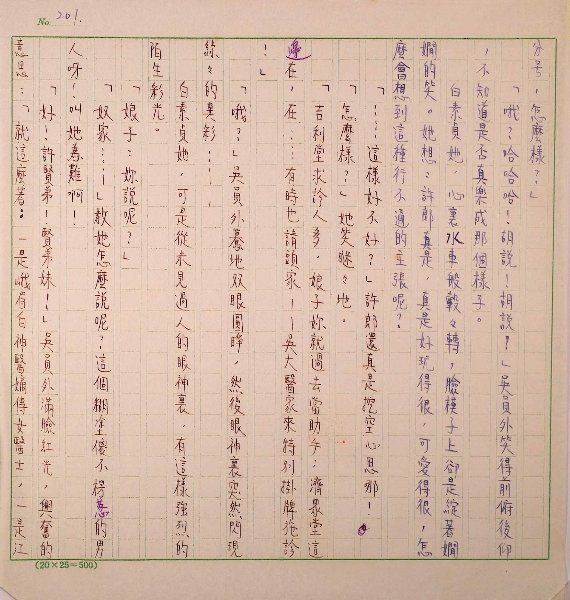 No. 201.
分号，怎麼樣？」
「哦？哈哈哈！胡說！胡說！」吳員外笑得前俯後仰
，不知道是否真樂成那個樣子。
白素貞她，心裏水車般轂々轉，臉模子上卻是綻著嫺
嫺的笑。她想：許郎真是，真是好玩得很，可愛得很，怎
麼會想到這種行不通的主張呢？
「……這樣好不好？」許郎還真是挖空心思那！
「怎麼樣？」她笑瞇々地。
吉利堂求診人多，娘子妳就過去當助手；濟眾堂這
邊在，在……有時也請頭家——吳大醫家來特別掛牌施診
！」
「哦？」吳員外驀地双眼圓睜，然後眼神裏突然閃現
絲々的異彩……
白素貞她，可是從未見過人的眼神裏，有這樣強烈的
陌生彩光。
「娘子：妳說呢？」
「奴家……」教她怎麼說呢？這個糊塗傻不楞蔥的男
人呀！叫她為難啊！
「好！許賢弟！賢弟妹！」吳員外滿臉紅光，興奮的
意思：「就這麼著：一是峨眉白神醫嫡傳女醫士，一是江
(20×25=500)